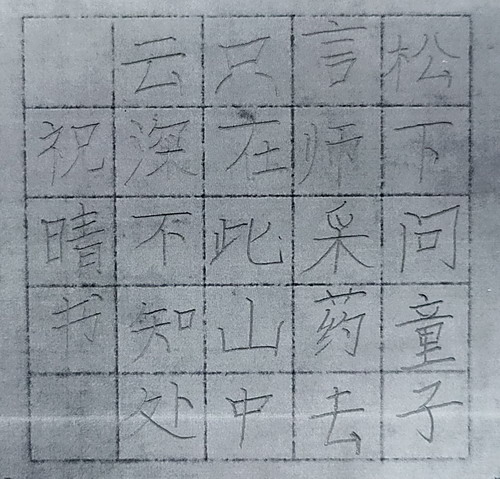 松下问童子
言师采药去
只在此山中
云深不知处
祝晴书